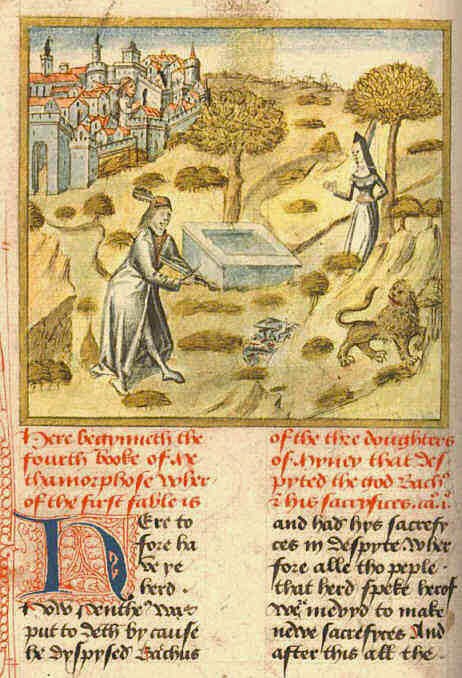 Here begynneth the
fourth booke of Me
thamorphose Wher
of the first fable is
of the thre doughters
of Myney that des
pyted the god Bachꝰ
& his sacryfices. ca. i.
DEre to
fore ha
ve ye
herd .
How Pentheꝰ was
put to deth by cause
he dyspysed Bachus
and had hys sacrefy
ces in despyte. Wher
fore alle tho peple .
that herd speke herof
were mevyd to make
newe sacrefyces And
after this all the .